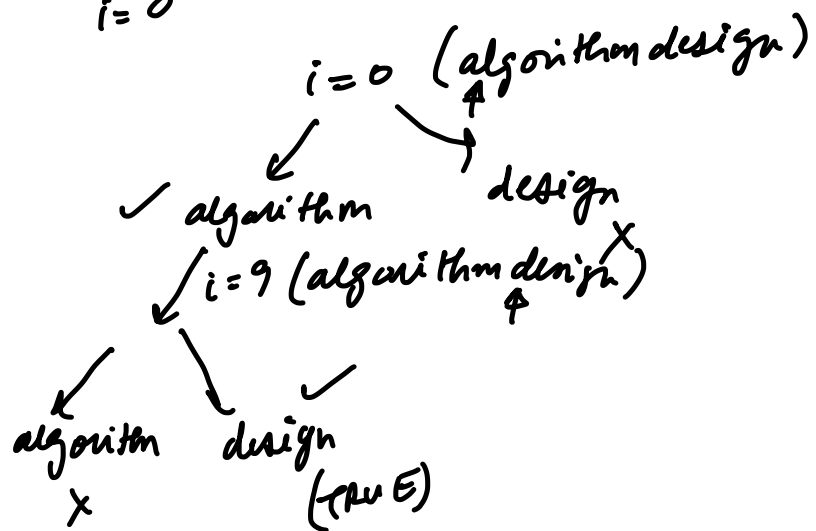 i= 0
i = 0 (algorithmdesign)
✓ algorithm design
X
i = 9 (algorithmdesign)
✓
algorithm design
X (TRUE)